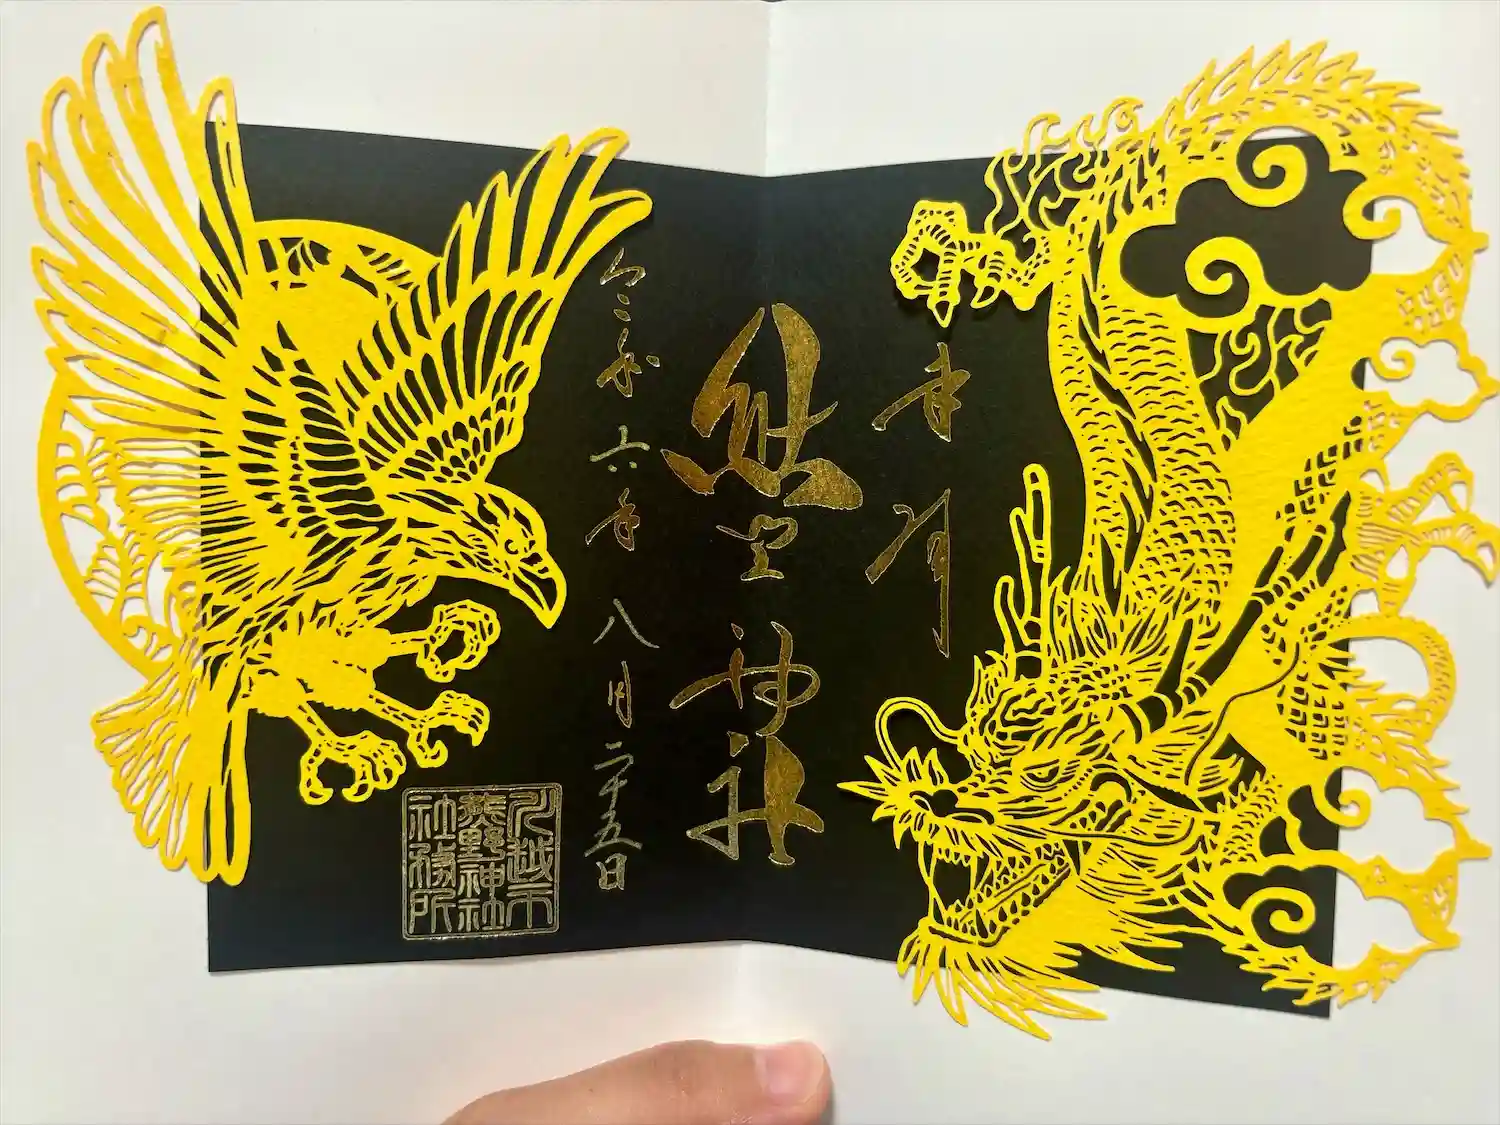 奉拝
熊野神社
令和六年八月二十五日
川越市
熊野神社
社務所